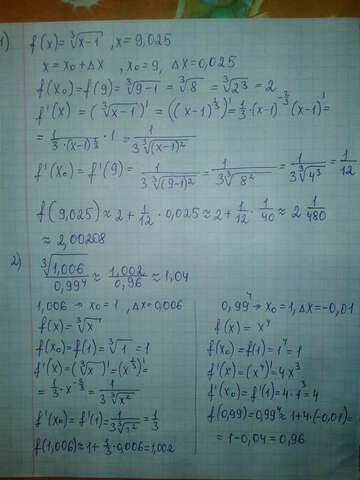 1) f(x) = ∛(x-1) , x = 9,025
x = x₀ + Δx , x₀ = 9, Δx = 0,025
f(x₀) = f(9) = ∛(9-1) = ∛8 = ∛(2³) = 2
f'(x) = (∛(x-1))' = ((x-1)^(1/3))' = 1/3 · (x-1)^(-2/3) (x-1)' =
= 1/(3·(x-1)^(2/3)) · 1 = 1/(3∛((x-1)²))
f'(x₀) = f'(9) = 1/(3∛((9-1)²)) = 1/(3∛(8²)) = 1/(3∛(4³)) = 1/12
f(9,025) ≈ 2 + 1/12 · 0,025 ≈ 2 + 1/12 · 1/40 ≈ 2 1/480
≈ 2,00208
2) ∛1,006 / 0,99⁴ ≈ 1,002/0,96 ≈ 1,04
1,006 → x₀ = 1 , Δx = 0,006
f(x) = ∛x
f(x₀) = f(1) = ∛1 = 1
f'(x) = (∛x)' = (x^(1/3))' =
= 1/3 · x^(-2/3) = 1/(3∛(x²))
f'(x₀) = f'(1) = 1/(3∛(1²)) = 1/3
f(1,006) ≈ 1 + 1/3 · 0,006 = 1,002
0,99⁴ → x₀ = 1, Δx = -0,01
f(x) = x⁴
f(x₀) = f(1) = 1⁴ = 1
f'(x) = (x⁴)' = 4x³
f'(x₀) = f'(1) = 4·1³ = 4
f(0,99) = 0,99⁴ ≈ 1 + 4·(-0,01) =
= 1 - 0,04 = 0,96